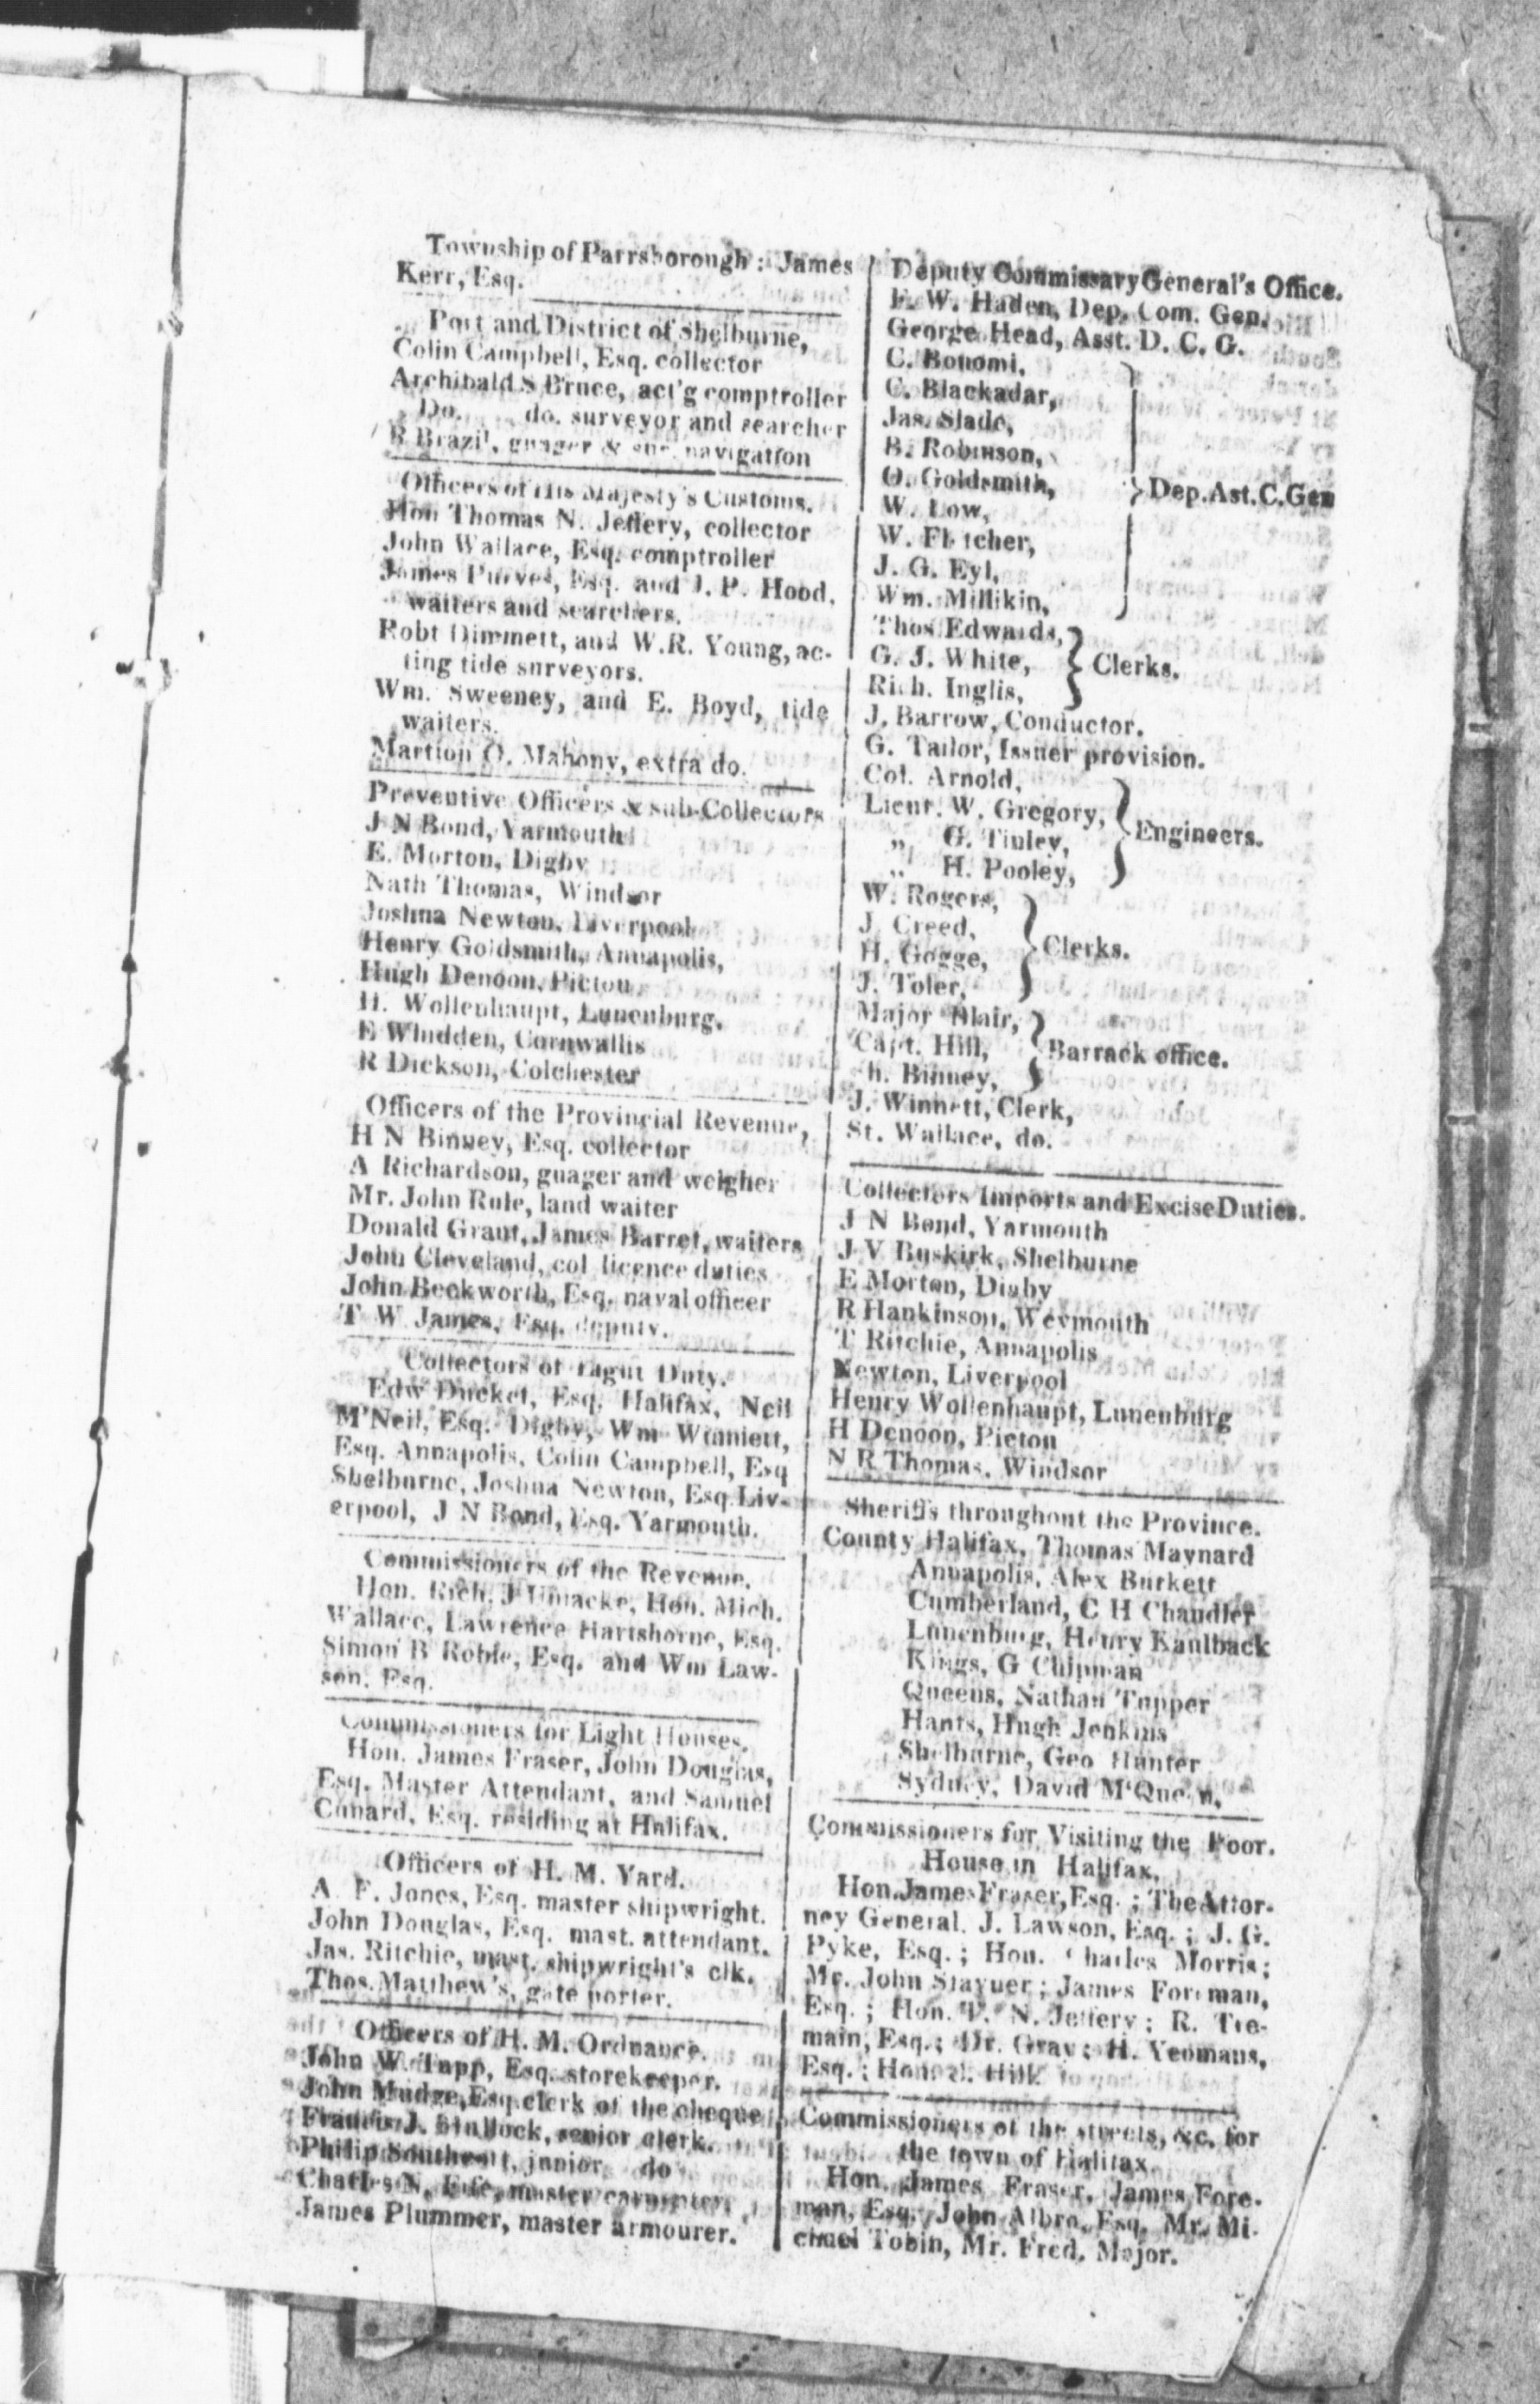 Township of Parrsborough: James
Kerr, Esq.
Port and District of Shelburne,
Colin Campbell, Esq. collector
Archibald S Bruce, act'g comptroller
Do. do. surveyor and searcher
R Brazil, guager & sur. navigation
Officers of His Majesty's Customs.
Hon Thomas N. Jeffery, collector
John Wallace, Esq. comptroller
James Purves, Esq. and J. P. Hood,
waiters and searchers.
Robt Dimmett, and W.R. Young, ac-
ting tide surveyors.
Wm. Sweeney, and E. Boyd, tide
waiters.
Martion O. Mahony, extra do.
Preventive Officers & sub-Collectors
J N Bond, Yarmouth
E. Morton, Digby
Nath Thomas, Windsor
Joshua Newton, Liverpool
Henry Goldsmith, Annapolis,
Hugh Denoon, Pictou
H. Wollenhaupt, Lunenburg.
E Whidden, Cornwallis
R Dickson, Colchester
Officers of the Provincial Revenue,
H N Binney, Esq. collector
A Richardson, guager and weigher
Mr. John Rule, land waiter
Donald Grant, James Barret, waiters
John Cleveland, col licence duties
John Beckworth, Esq. naval officer
T W James, Esq. deputy.
Collectors of Light Duty.
Edw Ducket, Esq. Halifax, Neil
M'Neil, Esq. Digby, Wm Winniett,
Esq. Annapolis, Colin Campbell, Esq
Shelburne, Joshua Newton, Esq Liv-
erpool, J N Bond, Esq. Yarmouth.
Commissioners of the Revenue.
Hon. Rich. J Uniacke, Hon. Mich.
Wallace, Lawrence Hartshorne, Esq.
Simon B Robie, Esq. and Wm Law-
son, Esq.
Commissioners for Light Houses.
Hon. James Fraser, John Douglas,
Esq. Master Attendant, and Samuel
Cunard, Esq. residing at Halifax.
Officers of H. M. Yard.
A. F. Jones, Esq. master shipwright.
John Douglas, Esq. mast. attendant.
Jas. Ritchie, mast. shipwright's clk.
Thos. Matthew's, gate porter.
Officers of H. M. Ordnance.
John W. Tapp, Esq. storekeeper.
John Mudge, Esq clerk of the cheque
Francis J. senior clerk.
Philip junior do
Charles N. master carpenter.
James Plummer, master armourer.
Deputy Commissary General's Office.
F. W. Haden, Dep. Com. Gen.
George Head, Asst. D. C. G.
C. Bonomi,
C. Blackadar,
Jas. Slade,
B. Robinson,
O. Goldsmith,
Dep. Ast. C. Gen
W. Low,
W. Fletcher,
J. G. Eyl,
Wm. Millikin,
Thos Edwards,
G. J. White,
Clerks.
Rich. Inglis,
J. Barrow, Conductor.
G. Tailor, Issuer provision.
Col. Arnold,
Lieut. W. Gregory,
Engineers.
„ G. Tinley,
„ H. Pooley,
W. Rogers,
J. Creed,
Clerks.
H. Gogge,
J. Toler,
Major Blair,
Capt. Hill,
Barrack office.
Binney,
J. Winnett, Clerk,
St. Wallace, do.
Collectors Imports and Excise Duties.
J N Bond, Yarmouth
J V Buskirk, Shelburne
E Morton, Digby
R Hankinson, Weymouth
T Ritchie, Annapolis
Newton, Liverpool
Henry Wollenhaupt, Lunenburg
H Denoon, Picton
N R Thomas, Windsor
Sheriffs throughout the Province.
County Halifax, Thomas Maynard
Annapolis, Alex Burkett
Cumberland, C H Chandler
Lunenburg, Henry Kaulback
Kings, G Chipman
Queens, Nathan Tupper
Hants, Hugh Jenkins
Shelburne, Geo Hunter
Sydney, David M'Queen,
Commissioners for Visiting the Poor.
House in Halifax.
Hon. James Fraser, Esq.; The Attor-
ney General. J. Lawson, Esq.; J. G.
Pyke, Esq.; Hon. Charles Morris;
Mr. John Stayner; James Foreman,
Esq.; Hon. T. N. Jeffery; R. Tre-
main, Esq.; Dr. Gray; H. Yeomans,
Esq.; Hill
Commissioners of the streets, &c. for
the town of Halifax
Hon. James Fraser, James Fore-
man, Esq. John Albro, Esq. Mr. Mi-
chael Tobin, Mr. Fred. Major.